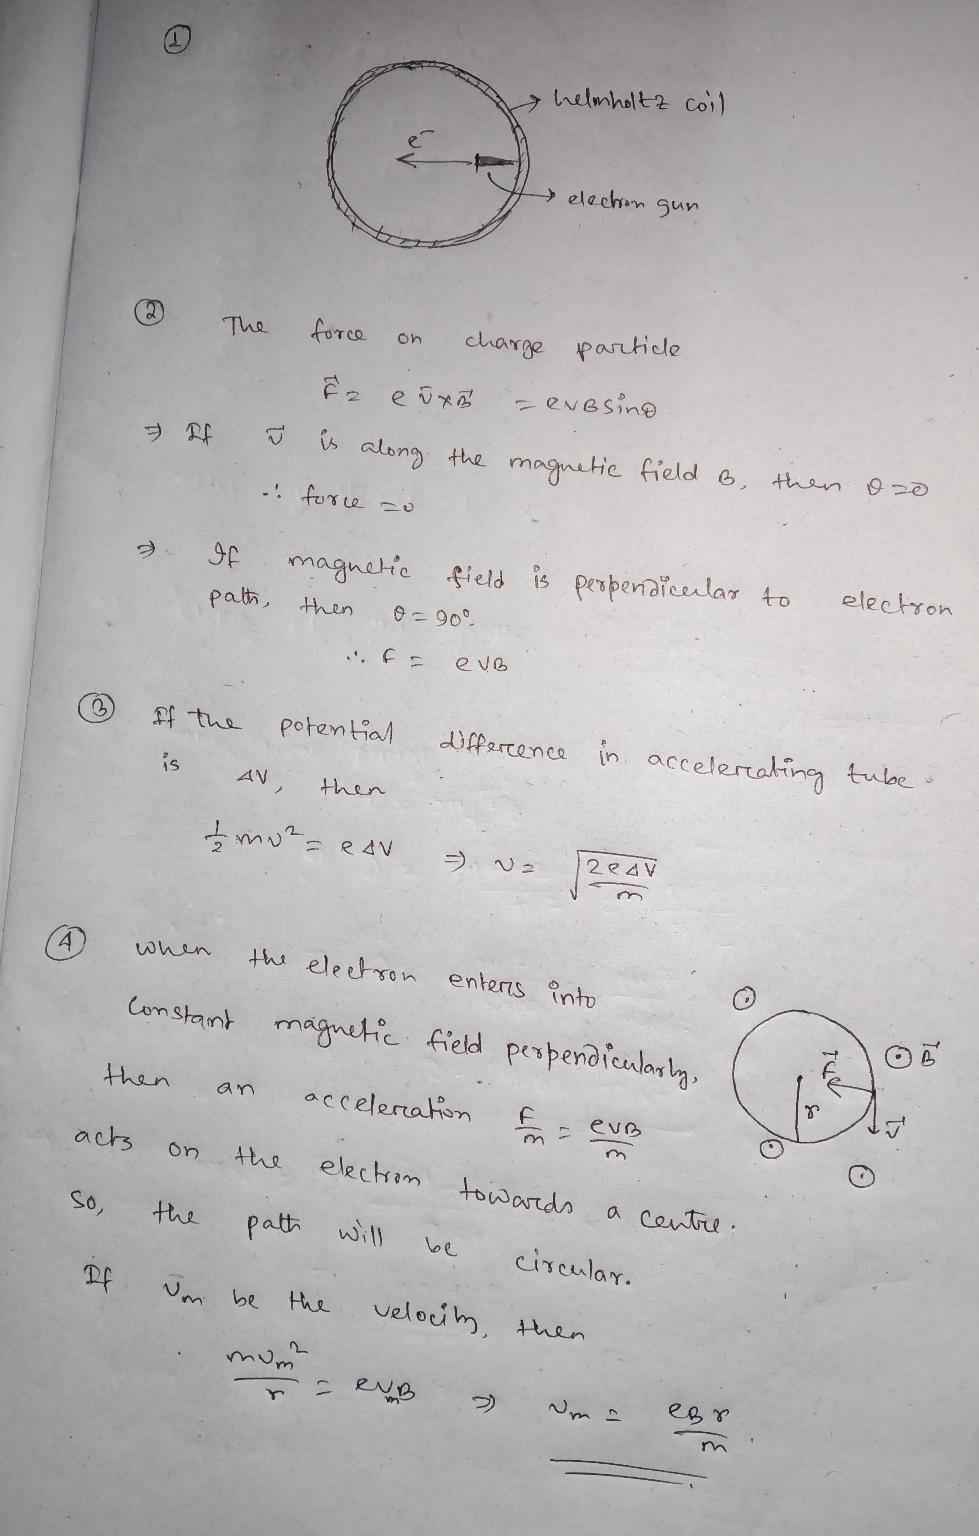 ①
e⁻
→ helmholtz coil
→ electron gun
② The force on charge particle
F⃗ = e v̄ × B⃗ = evB sinθ
⇒ If v̄ is along the magnetic field B, then θ=0
∴ force =0
⇒ If magnetic field is perpendicular to electron
path, then θ = 90°
∴ F = evB
③ If the potential difference in accelerating tube
is ΔV, then
½ mv² = eΔV ⇒ v = √(2eΔV/m)
④ When the electron enters into
Constant magnetic field perpendicularly,
then an acceleration F/m = evB/m
acts on the electron towards a centre.
So, the path will be circular.
⊙ B⃗
F⃗
r
v⃗
If vm be the velocity, then
mvm²/r = evmB ⇒ vm = eBr/m.